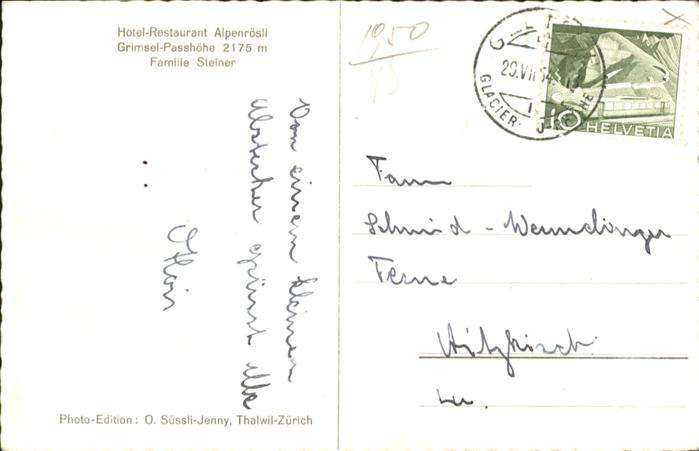 Hotel-Restaurant Alpenrösli
Grimsel-Passhöhe 2175 m
Familie Steiner
1950
Von einem kleinen
Abstecher grüsst alle
Photo-Edition: O. Süssli-Jenny, Thalwil-Zürich
GLETSCH
29.VII.54
GLACIER
10 HELVETIA
Fam.
Schmid - Wendinger
Ferne
Hitzkirch
Lu.